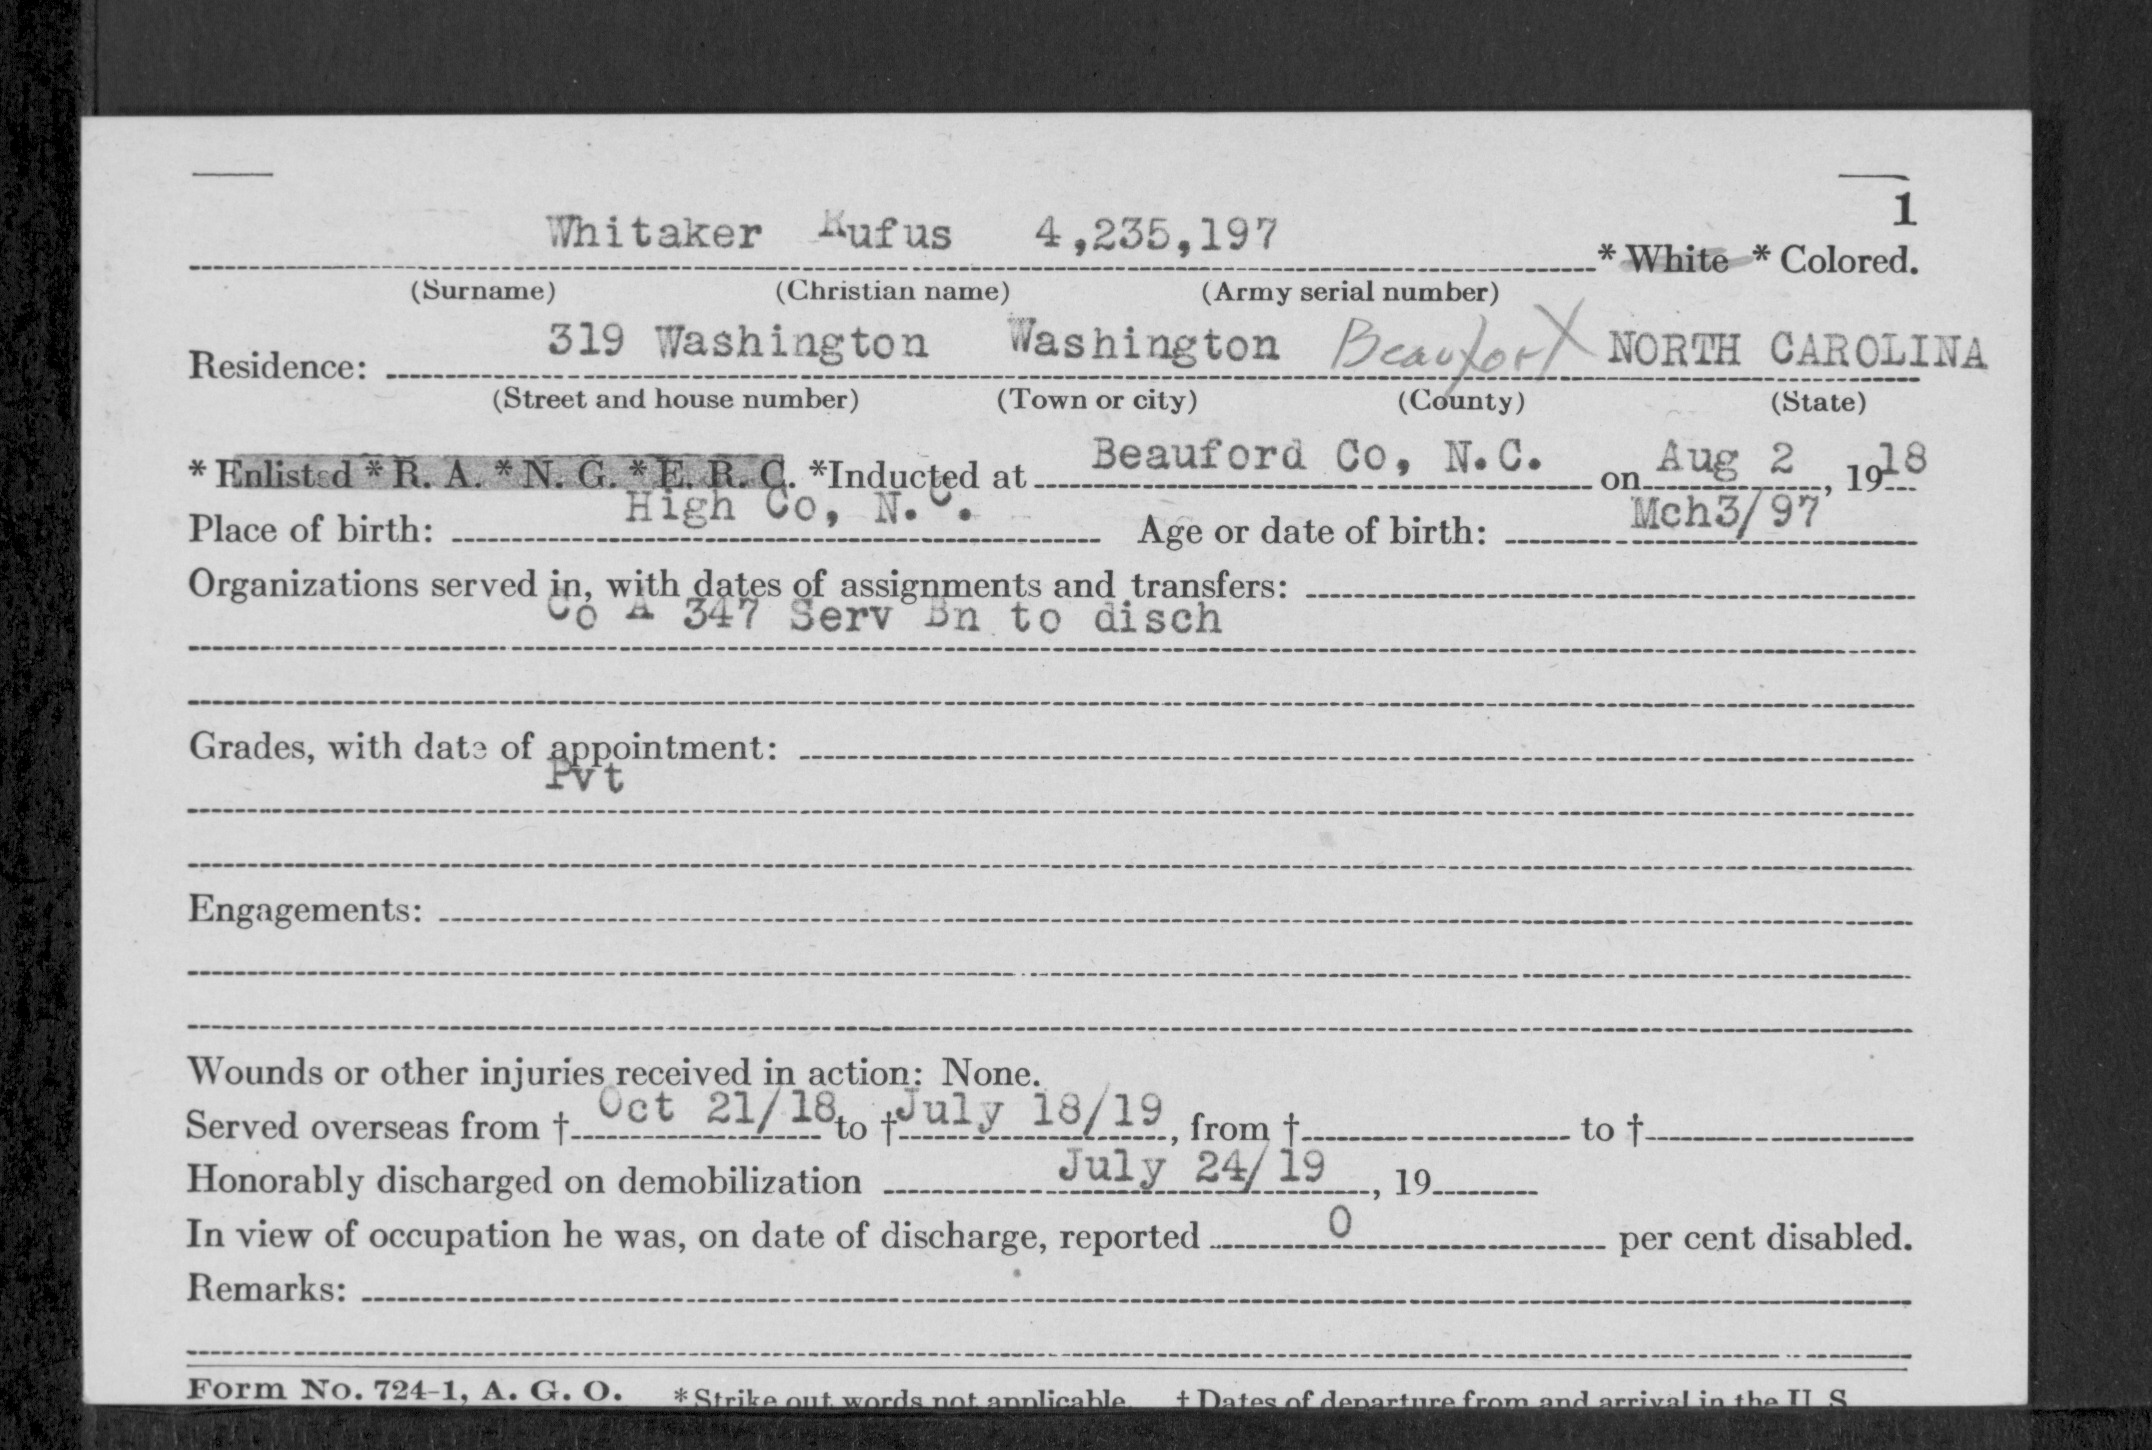 1
Whitaker Rufus 4,235,197 * White * Colored.
(Surname) (Christian name) (Army serial number)
Residence: 319 Washington Washington Beaufort NORTH CAROLINA
(Street and house number) (Town or city) (County) (State)
* Enlisted * R. A. * N. G. * E. R. C. *Inducted at Beauford Co, N.C. on Aug 2, 1918
Place of birth: High Co, N.C. Age or date of birth: Mch3/97
Organizations served in, with dates of assignments and transfers:
Co A 347 Serv Bn to disch
Grades, with date of appointment:
Pvt
Engagements:
Wounds or other injuries received in action: None.
Served overseas from † Oct 21/18 to † July 18/19, from † to †
Honorably discharged on demobilization July 24/19, 19
In view of occupation he was, on date of discharge, reported 0 per cent disabled.
Remarks:
Form No. 724-1, A. G. O. * Strike out words not applicable. † Dates of departure from and arrival in the U. S.